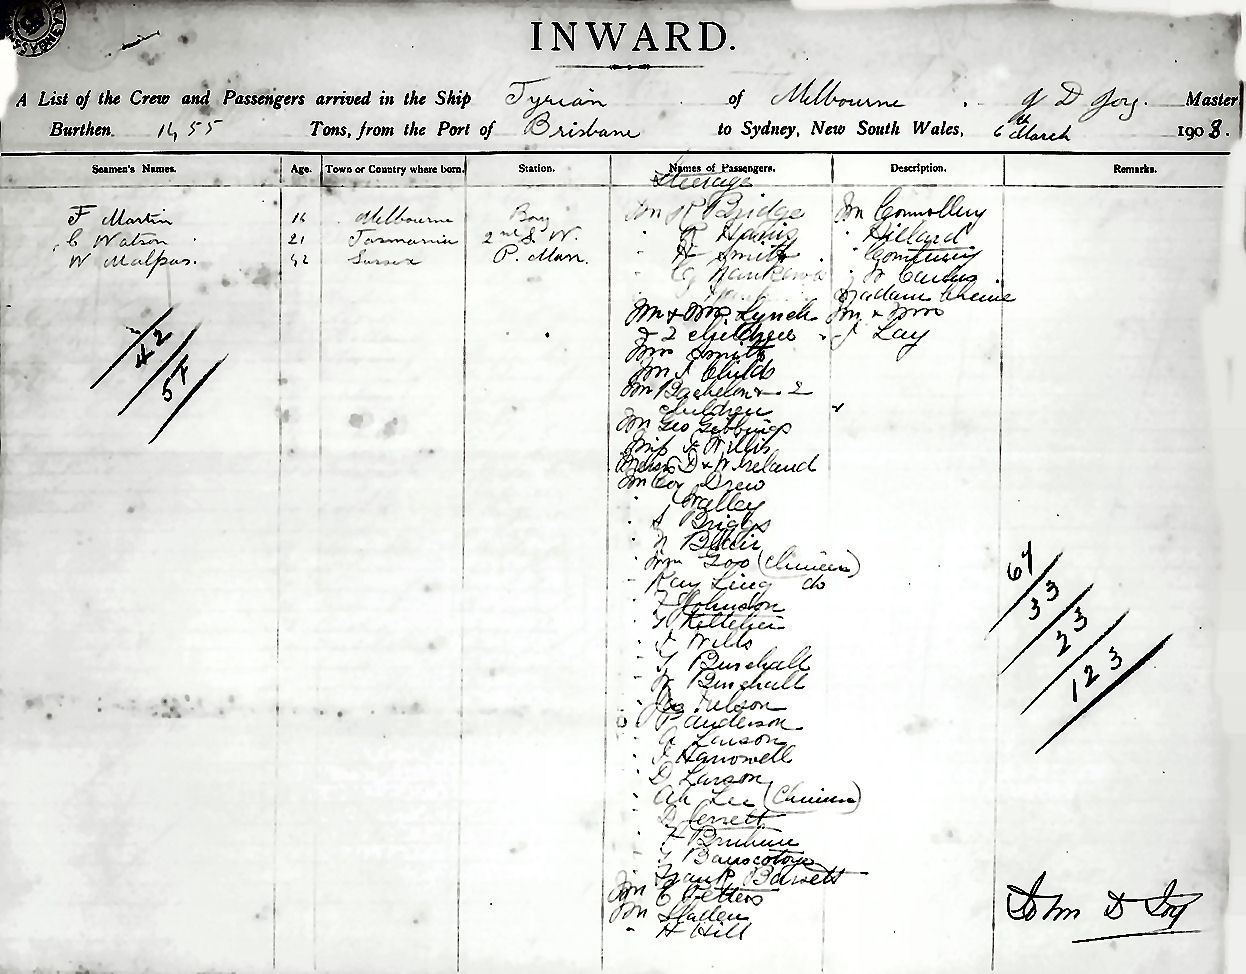 INWARD.
A List of the Crew and Passengers arrived in the Ship Tyrian of Melbourne, J D Joy. Master
Burthen 1455 Tons, from the Port of Brisbane to Sydney, New South Wales, 6th March 1908.
Seamen's Names. Age. Town or Country where born. Station. Names of Passengers. Description. Remarks.
Steerage
F Martin 16 Melbourne Boy
C Watson 21 Tasmania 2nd S W.
W Malpas. 42 Sussex P. Man.
42
57
Mr R Bridge
" Harris
" H Smith
" G
Mr & Mrs Lynch
& 2 children
Mrs Smith
Mr J Childs
Mr Bachelor & 2
children
Mr Geo Gibbings
Miss A Willis
D & W Ireland
Mr Drew
" Walley
" S Briggs
" N Blair
" Goo (Chinese)
" Kay Ling do
" F Johnson
" Kelleher
" Wills
" Burchall
" W Burchall
" Jas Nelson
" P Anderson
" A Larson
" J Harrowell
" D Larson
" Ah Lee (Chinese)
" D Jerrett
" F
" Frank Barrett
Mr C Petters
Mr Sladen
" H Hill
Mr Connolley
" Dillard
"
" W
Madam
Mr & Mrs
J Lay
67
33
23
123
John D Joy